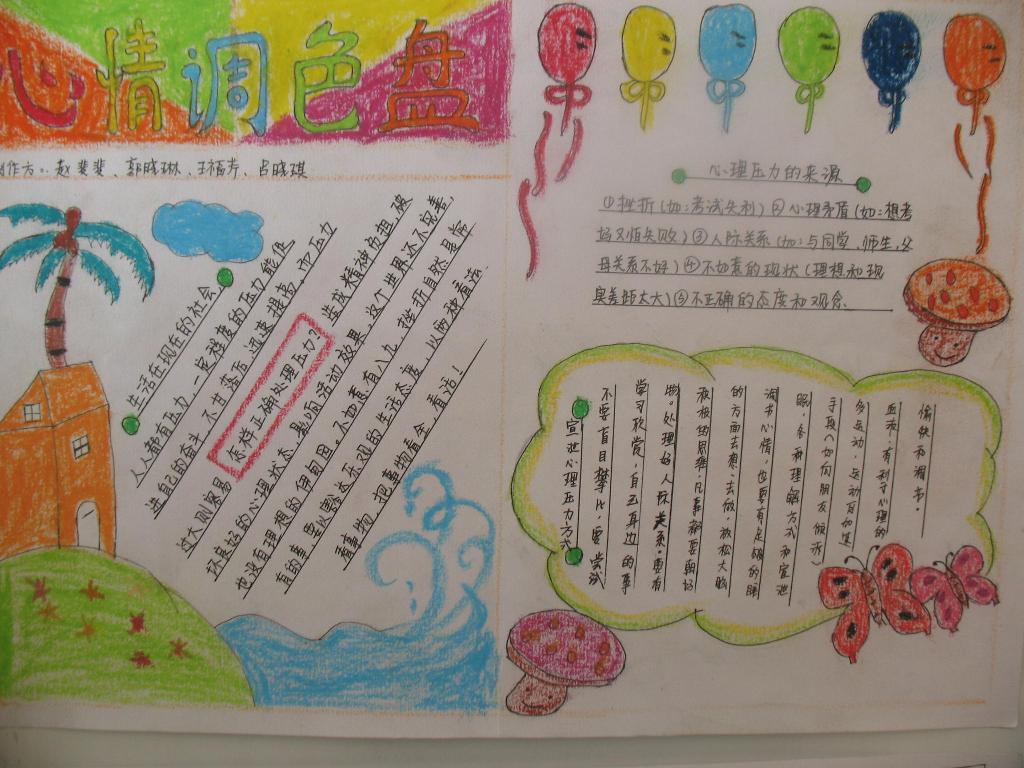 心情调色盘
制作方：赵斐斐、郭晓琳、王福芳、吕晓琪
生活在现在的社会
人人都有压力，一定程度的压力能促
进自己的奋斗，不甘落后，迅速提高，而压力
过大则容易造成精神负担，破
怎样正确处理压力？
坏良好的心理状态，影响活动效果，这个世界还不完善，
也没有理想的伊甸园，不如意有八九，挫折自然是常
有的事，要以豁达乐观的生活态度，以两种看法
看事物，把事物看全，看活！
心理压力的来源
①挫折(如：考试失利)②心理矛盾(如：想考
好又怕失败)③人际关系(如：与同学、师生、父
母关系不好)④不如意的现状(理想和现
实差距太大)⑤不正确的态度和观念。
宣泄心理压力方式
不要盲目攀比，要尝试
学习欣赏，自己身边的事
物，处理好人际关系，要有
积极的思维，凡事都要朝好
的方面去想，去做，放松大脑
调节心情，也要有足够的睡
眠，合有理解方式和宣泄
手段(如向朋友倾诉)
多运动，运动有加速
血液，有利于心理的
愉快和调节。